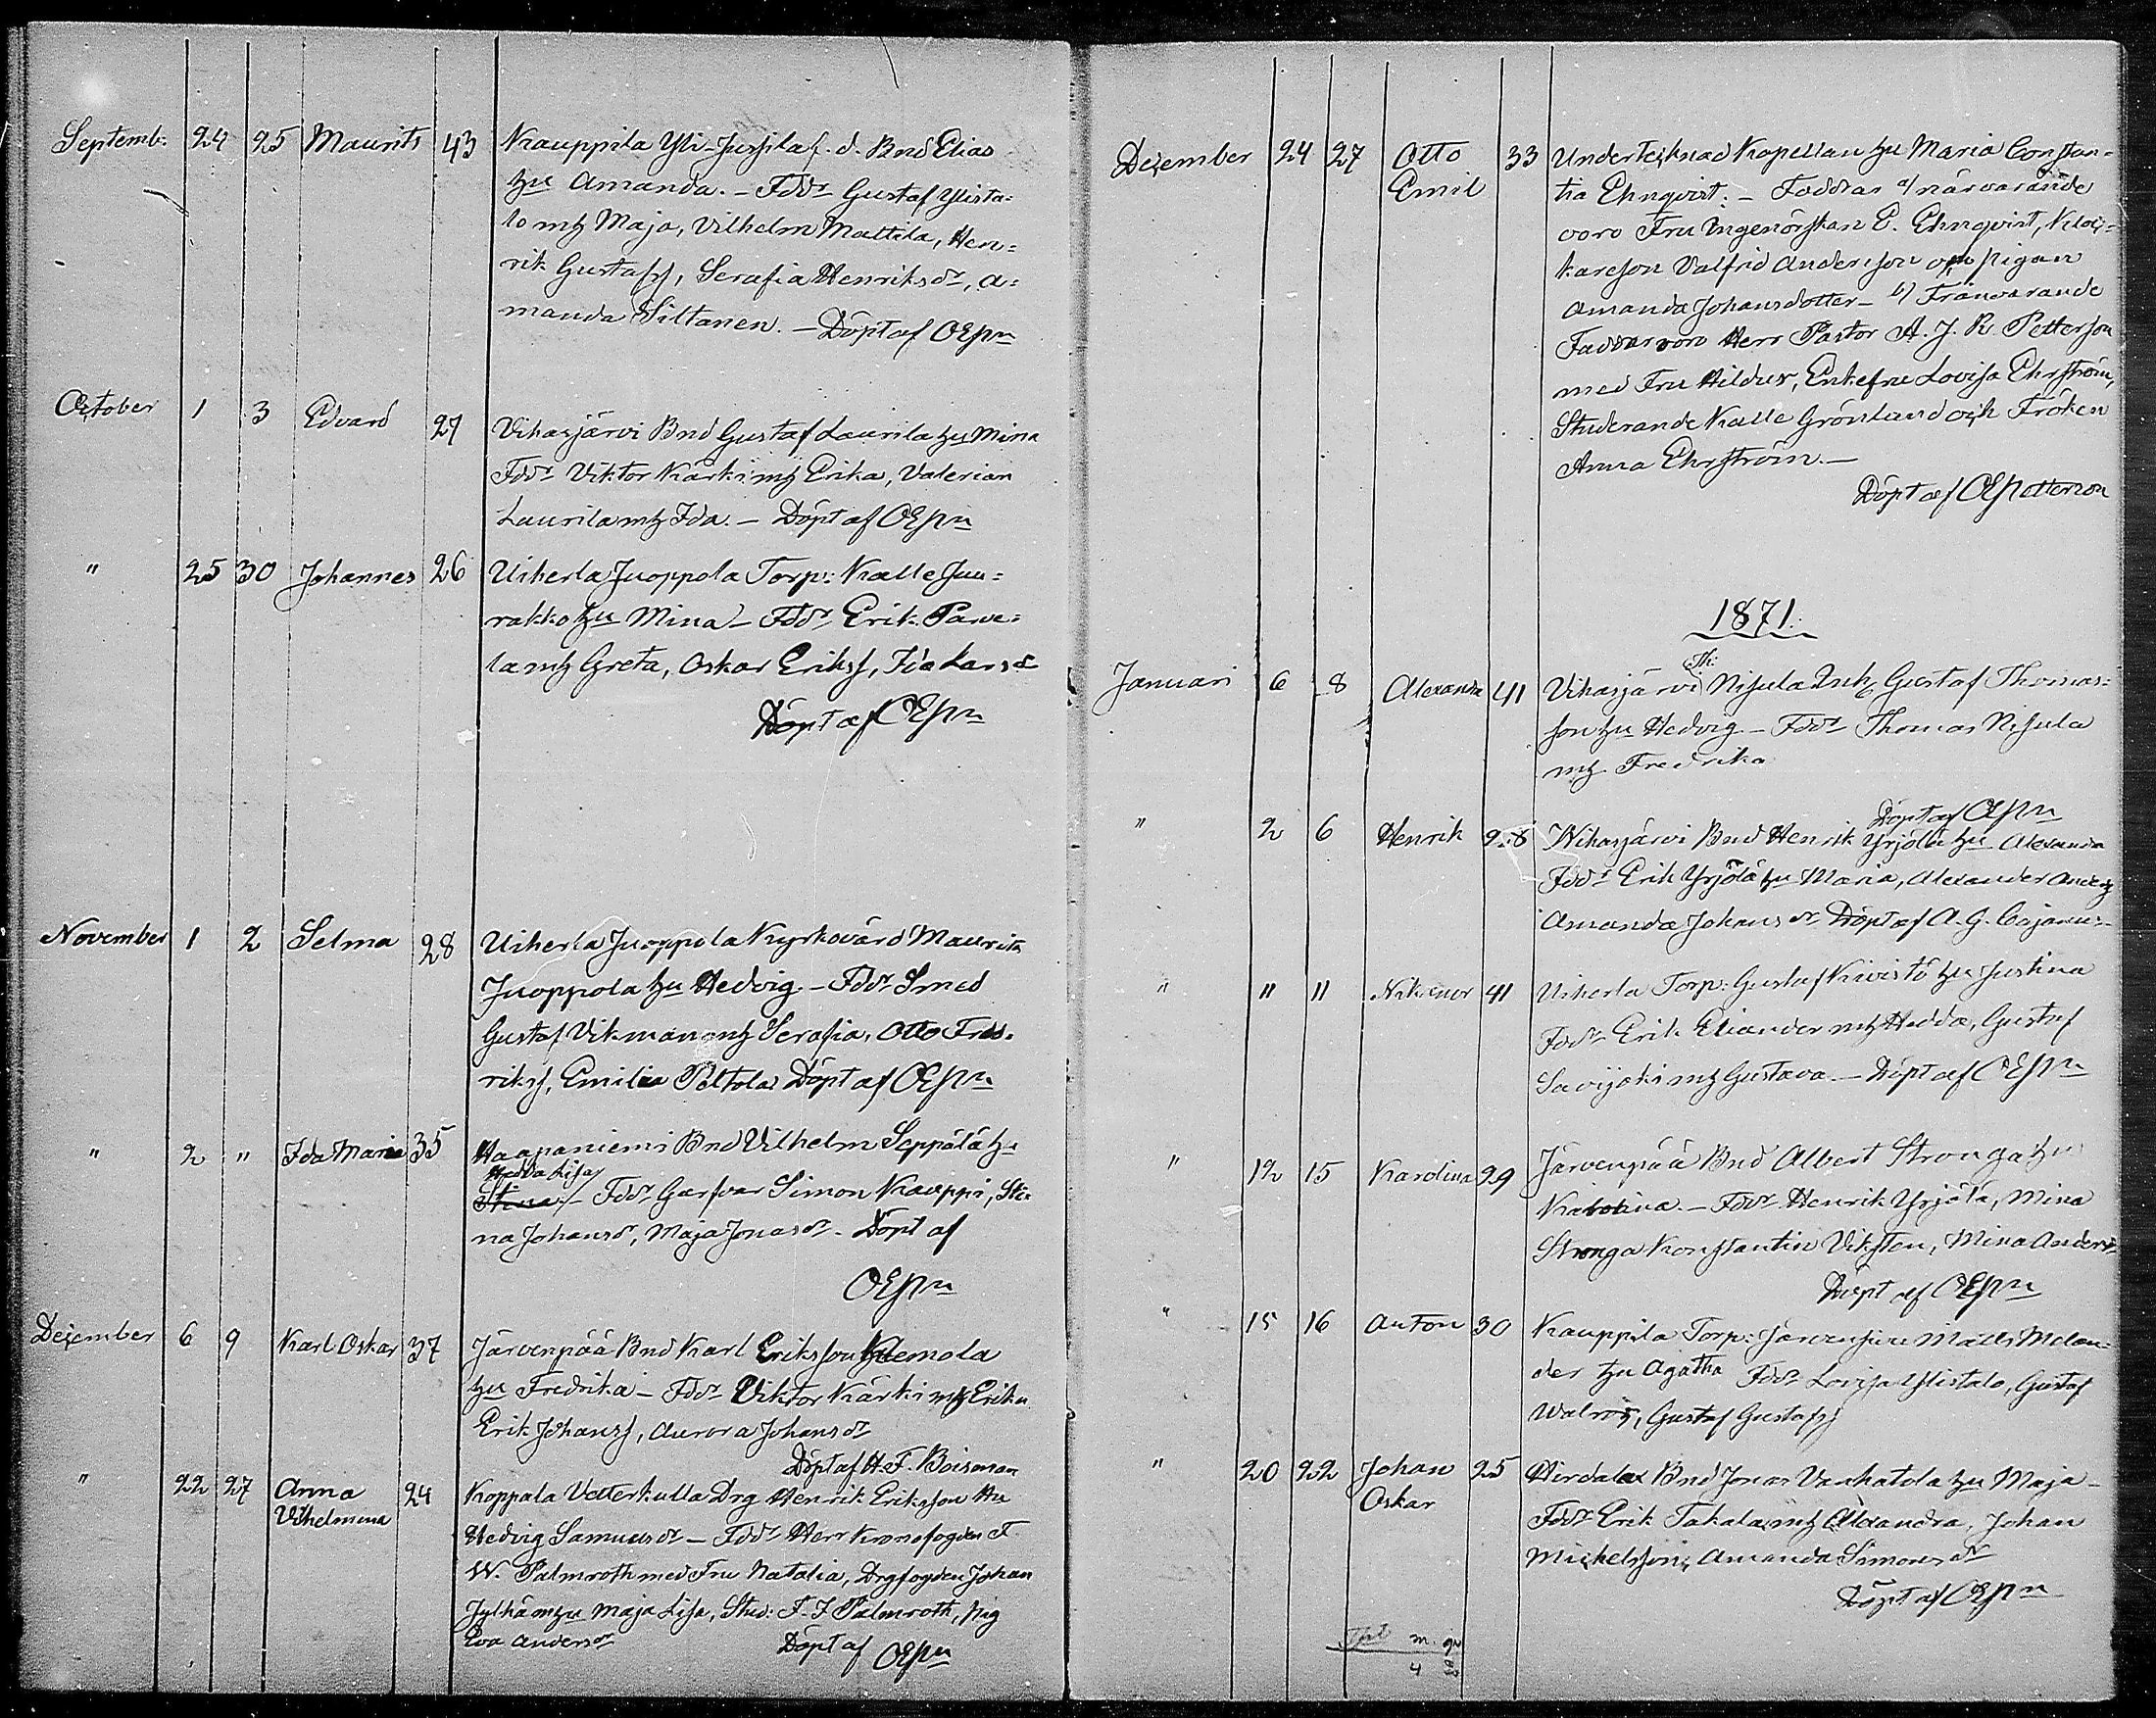 Septemb. 24 25 Maurits 43 Kauppila Yli-Jussila f. d. Bnd Elias
hu Amanda. - Fddr Gustaf Ylista=
lo mh Maja, Vilhelm Mattila, Hen=
rik Gustafss, Serafia Henriksdr, A=
manda Siltanen. - Döpt af OEPn
October 1 3 Edvard 27 Vihasjärvi Bnd Gustaf Laurila hu Mina
Fddr Viktor Kärki mh Erika, Valerian
Laurila mh Ida. - Döpt af OEPn
" 25 30 Johannes 26 Uiherla Juoppola Torp: Kalle Juu=
rakko hu Mina - Fddr Erik Parve=
la mh Greta, Oskar Erikss, Ida Larsdr
Döpt af OEPn
November 1 2 Selma 28 Uiherla Juoppola Kyrkovärd Maurits
Juoppola hu Hedvig. - Fddr Smed
Gustaf Vikman mh Serafia, Otto Fred=
rikss, Emilia Peltola Döpt af OEPn
" 2 " Ida Maria 35 Haapaniemi Bnd Vilhelm Seppälä hu
Hedda Lisa
Stina - Fddr Garfvar Simon Kauppi, Sti=
na Johansdr, Maja Jonasdr. Döpt af
OEPn
December 6 9 Karl Oskar 37 Järvenpää Bnd Karl Eriksson Klemola
hu Fredrika - Fddr Viktor Kärki mh Erika
Erik Johanss, Aurora Johansdr
Döpt af H. F. Boisman
" 22 27 Anna 24 Koppala Vetterkulla Drg Henrik Eriksson Hu
Vilhelmina
Hedvig Samuelsdr - Fddr Herr Kronofogden F.
W. Palmroth med Fru Natalia, Drgfogden Johan
Jylhä m hu Maja Lisa, Stud: F. F Palmroth, pig
Eva Andersdr Döpt af OEPn
December 24 27 Otto 33 Undertecknad Kapellan hu Maria Constan=
Emil
tia Ehnqvist. - Faddrar a/ närvarande
voro Fru Ingenörskan E. Ehnqvist, Kloc=
kareson Valfrid Andersson och pigan
Amanda Johansdotter - b/ Frånvarande
Faddrar voro Herr Pastor A. J. R. Petterson
med Fru Hildur, Enkefru Lovisa Ehrström,
Studerande Kalle Grönlund och Fröken
Anna Ehrström. -
Döpt af OEPetterson
1871.
Januari 6 8 Alexandra 41 Vihasjärvi Nisula Inh Gustaf Thomas=
son hu Hedvig - Fddr Thomas Nisula
mh Fredrika
Döpt af OEPn
" 2 6 Henrik 28 Wihasjärvi Bnd Henrik Yrjölä hu Alexandra
Fddr Erik Yrjölä hu Maria, Alexander Anderss
Amanda Johansdr Döpt af A. G. Cajanus
" 11 11 Nikanor 41 Uiherla Torp: Gustaf Kivistö hu Justina
Fddr Erik Eliander mh Hedda, Gustaf
Savijoki mh Gustava. - Döpt af OEPn
" 12 15 Karolina 29 Järvenpää Bnd Albert Stronga hu
Karolina. - Fddr Henrik Yrjölä, Mina
Stronga Konstantin Viksten, Mina Andersdr
Döpt af OEPn
" 15 16 Anton 30 Kauppila Torp: Järvensivu Matts Melan=
der hu Agatha Fddr Lovisa Ylistalo, Gustaf
Walros, Gustaf Gustafss
" 20 22 Johan 25 Hirdala Bnd Jonas Vanhatalo hu Maja -
Oskar
Fddr Erik Takala mh Alexandra, Johan
Mickelsson, Amanda Simonsdr
Döpt af OEPn
m. qv
4